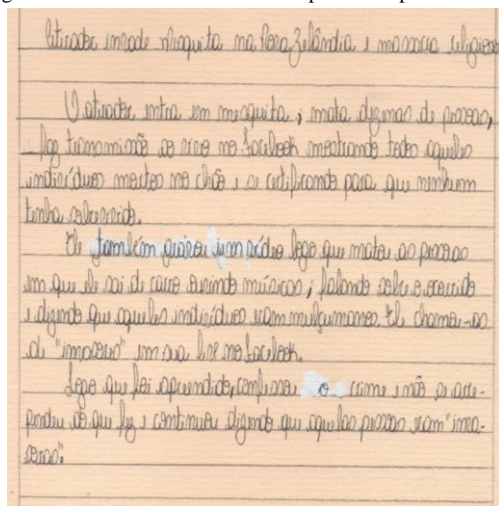 Atirador invade mesquita na Nova Zelândia e massacra religiosos
O atirador entra em mesquita, mata dezenas de pessoas,
faz transmissão ao vivo no Facebook mostrando todos aqueles
indivíduos mortos no chão e se certificando para que nenhum
tenha sobrevivido.
Ele também gravou um vídeo logo que matou as pessoas
em que ele sai de carro ouvindo músicas, falando sobre o ocorrido
e dizendo que aqueles indivíduos eram mulçumanos. Ele chamou-os
de "invasores" em sua live no Facebook.
Logo que foi apreendido, confessou o crime e não se arre-
pendeu do que fez e continuou dizendo que aquelas pessoas eram "inva-
soras".